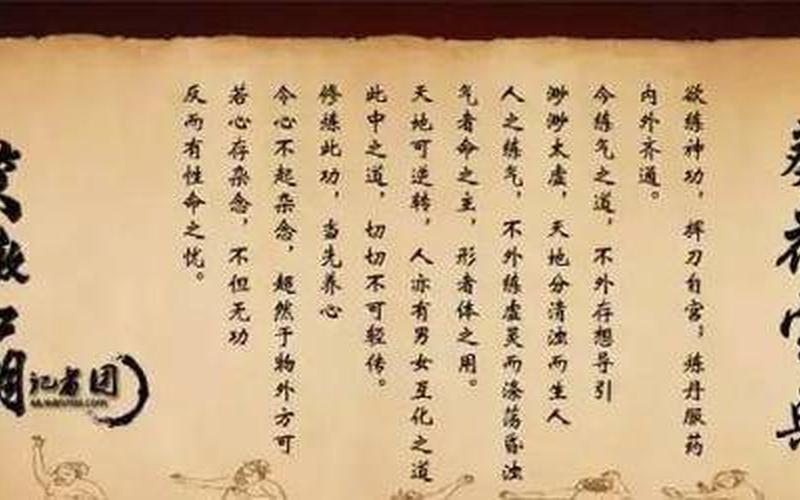 葵花宝典
欲练神功，挥刀自宫；炼丹服药
内外齐通。
今练气之道，不外存想导引
渺渺太虚，天地分清浊而生人
人之练气，不外练虚灵而涤荡昏浊
气者命之主，形者体之用。
天地可逆转，人亦有男女互化之道
此中之道，切切不可轻传。
修练此功，当先养心
令心不起杂念，超然于物外方可
若心存杂念，不但无功
反而有性命之忧。
笑傲江湖
记者团